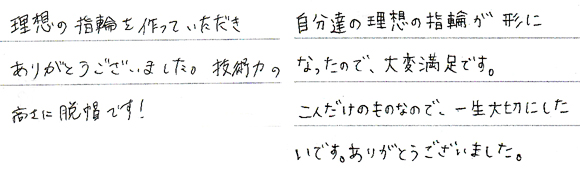 理想の指輪を作っていただき
ありがとうございました。技術力の
高さに脱帽です！
自分達の理想の指輪が形に
なったので、大変満足です。
こんだけのものなので、一生大切にした
いです。ありがとうございました。